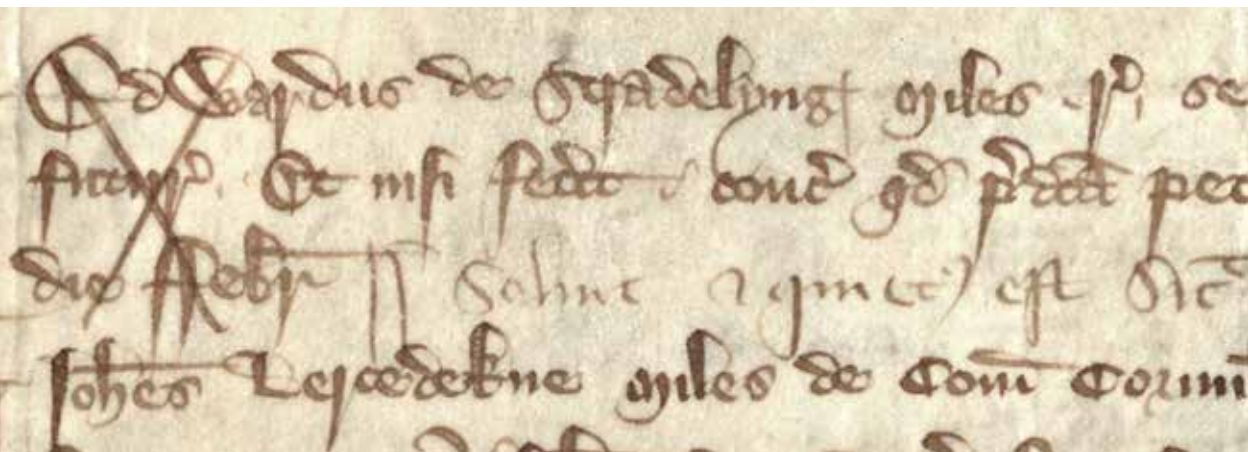 Edwardus de Stradelyng miles r' se
futur'. Et nisi fec'it conc' qd' p'dict' pec
die Febr' Soluit & quiet' est Sic
Joh'es Lercedekne miles de Com' Cornu'